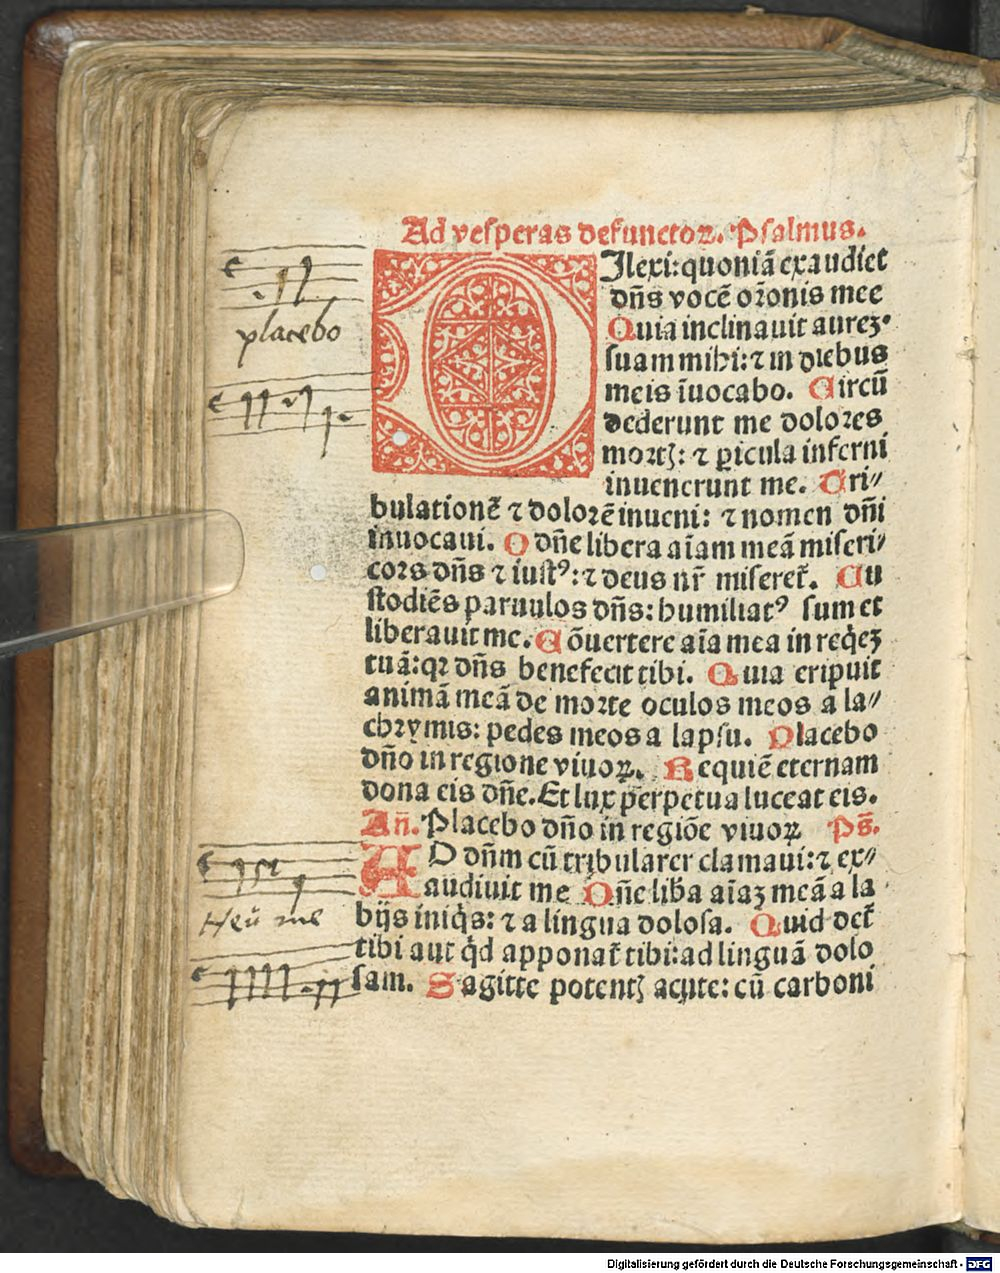 Ad vesperas defunctoꝝ. Psalmus.
DIlexi: quoniā exaudiet
dn̄s vocē or̄onis mee
Quia inclinauit aureꝫ
suam mihi: ⁊ in diebus
meis īuocabo. Circū
dederunt me dolores
mortꝭ: ⁊ ꝑicula inferni
inuenerunt me. Tri⸗
bulationē ⁊ dolorē inueni: ⁊ nomen dn̄i
inuocaui. O dn̄e libera aīam meā miseri⸗
cors dn̄s ⁊ iustꝰ: ⁊ deus nr̄ miseret̄. Cu
stodiēs paruulos dn̄s: humiliatꝰ sum et
liberauit me. Cōuertere aīa mea in reqͥeꝫ
tuā: qꝛ dn̄s benefecit tibi. Quia eripuit
animā meā de morte oculos meos a la⸗
chrymis: pedes meos a lapsu. Placebo
dn̄o in regione viuoꝝ. Requiē eternam
dona eis dn̄e. Et lux perpetua luceat eis.
An̄. Placebo dn̄o in regiōe viuoꝝ Ps̄.
AD dn̄m cū tribularer clamaui: ⁊ ex⸗
audiuit me Dn̄e liba aīaꝫ meā a la
bijs iniqͥs: ⁊ a lingua dolosa. Quid det̄
tibi aut qͥd apponat̄ tibi: ad linguā dolo
sam. Sagitte potentꝭ acute: cū carboni
placebo
Heū me
Digitalisierung gefördert durch die Deutsche Forschungsgemeinschaft - DFG